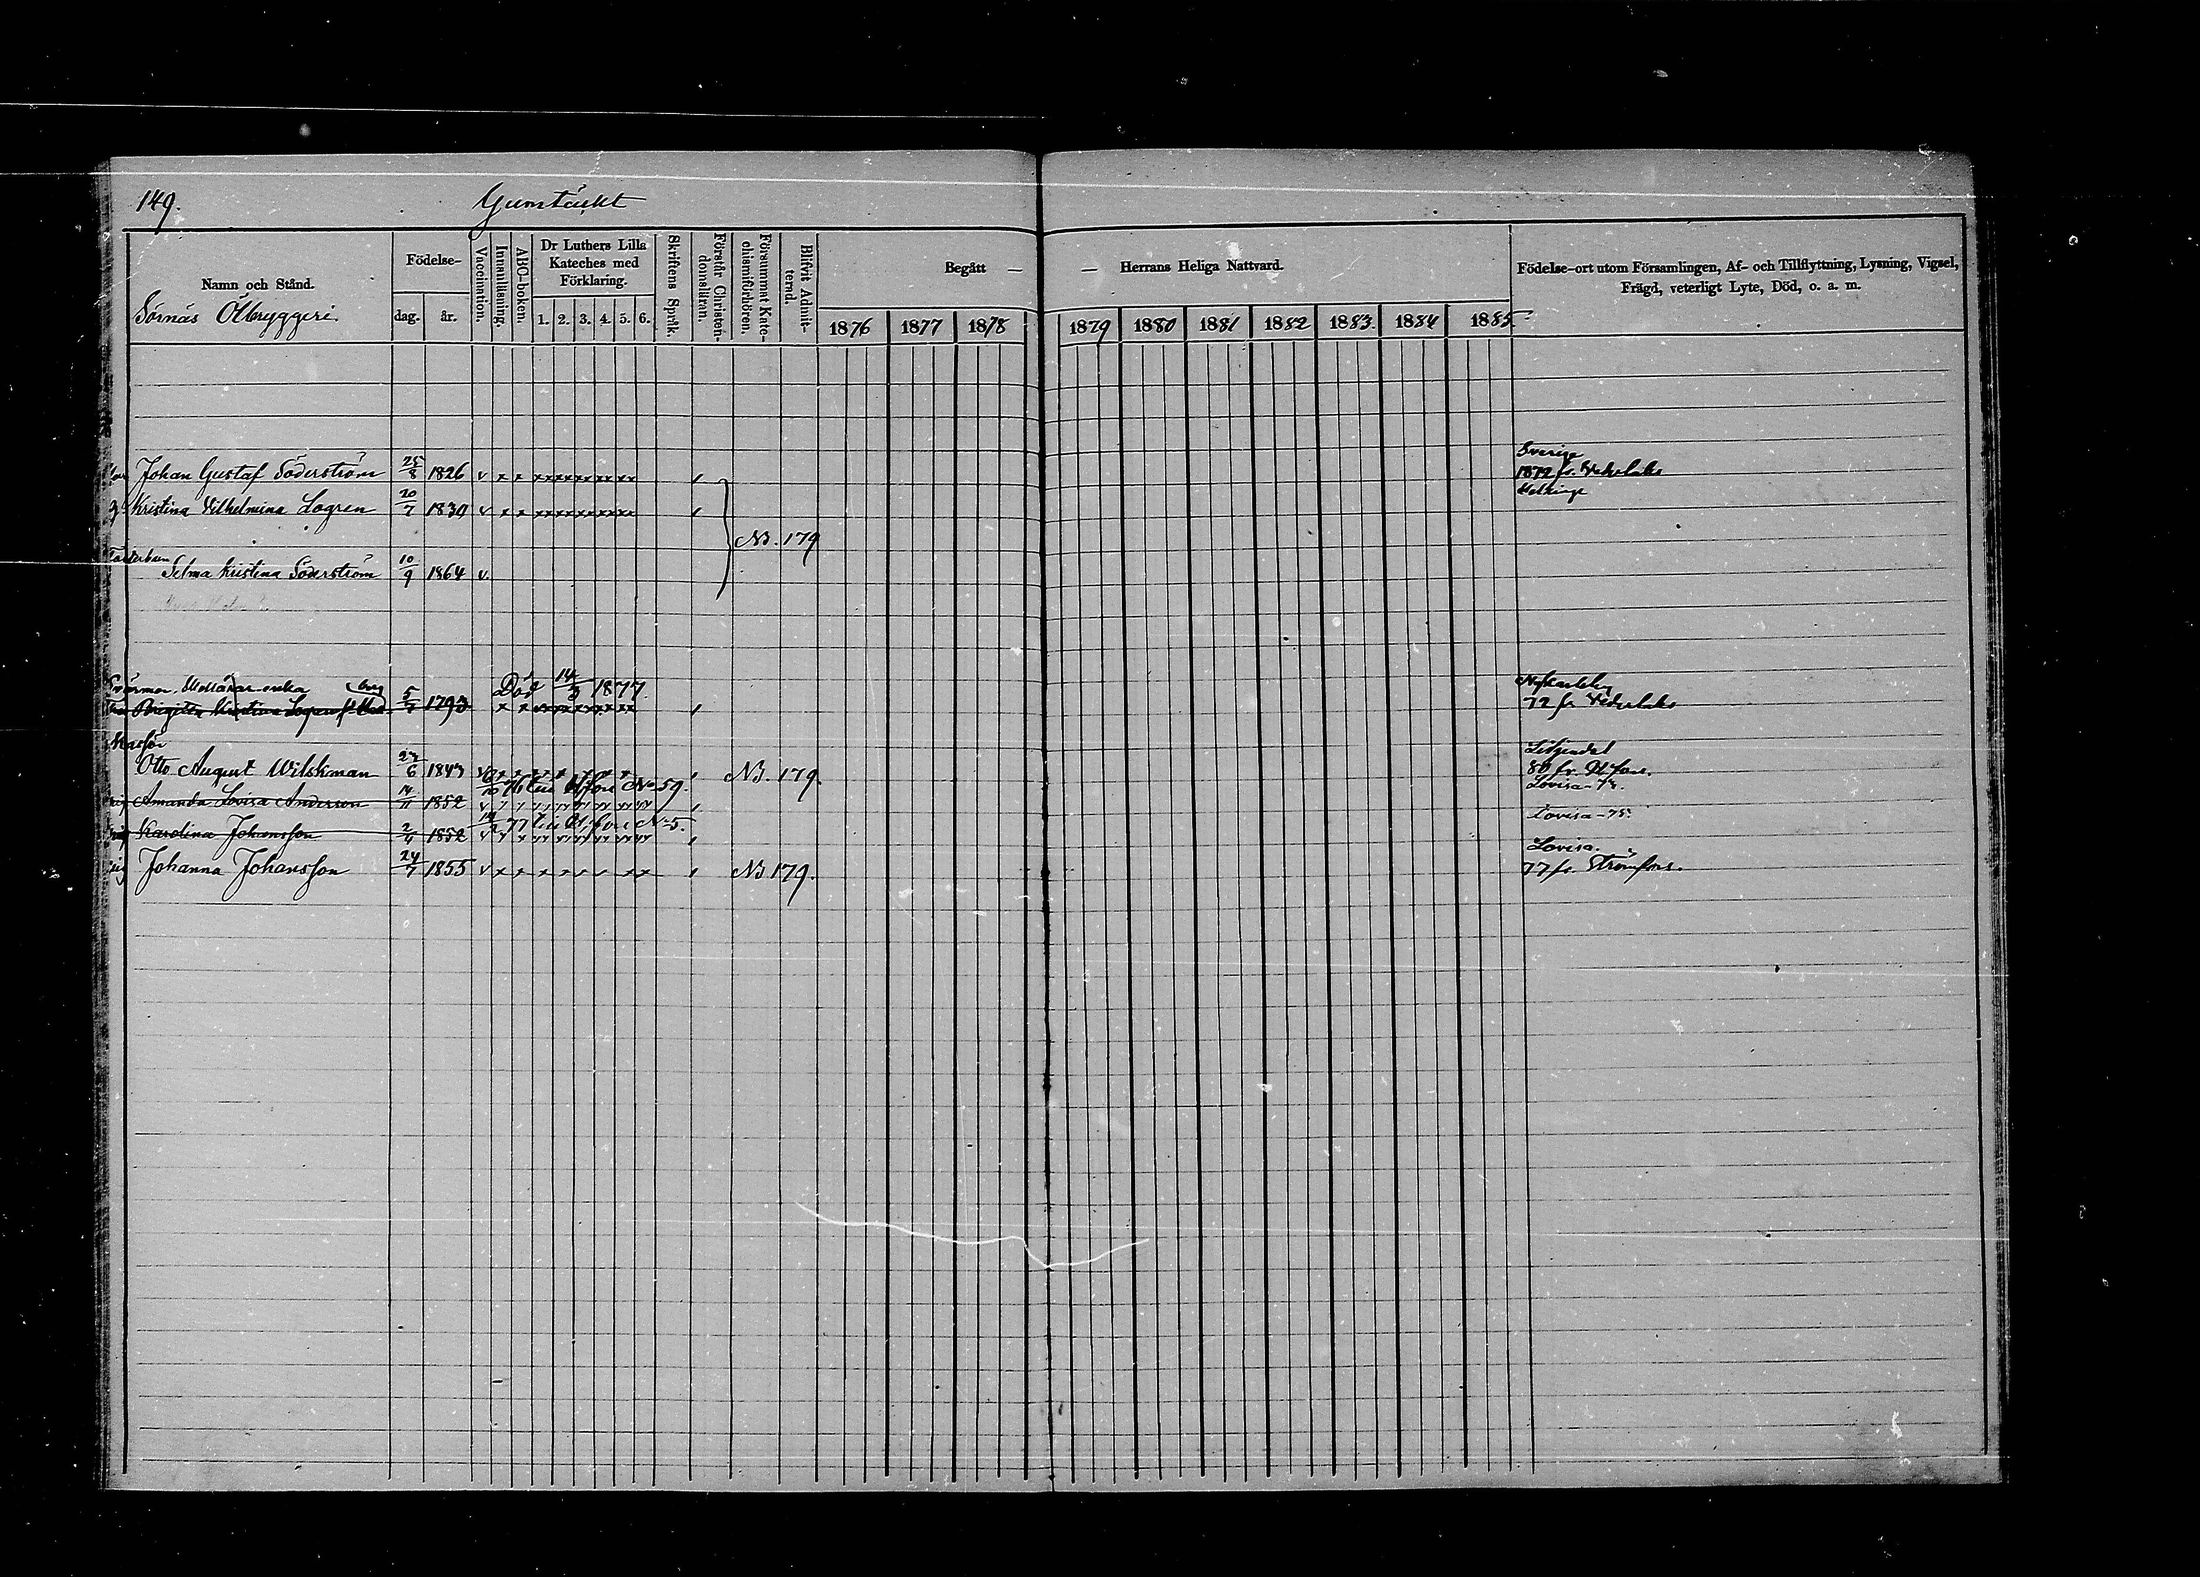 149. Gumtäkt
Namn och Stånd.
Sörnäs Ölbryggeri.
Födelse-
dag. år.
Vaccination.
Innanläsning.
ABC-boken.
Dr Luthers Lilla Kateches med Förklaring.
1. 2. 3. 4. 5. 6.
Skriftens Språk.
Förstår Christendomsläran.
Försummat Katechismiförhören.
Blifvit Admitterad.
Begått — — Herrans Heliga Nattvard.
1876 1877 1878 1879 1880 1881 1882 1883. 1884 1885
Födelse-ort utom Församlingen, Af- och Tillflyttning, Lysning, Vigsel,
Frägd, veterligt Lyte, Död, o. a. m.
Sverige
Johan Gustaf Söderström 25/8 1826 v x x xxxxxxxxxx 1872 fr. Vekelaks
Kristina Vilhelmina Logren 20/7 1830 v x x xxxxxxxxxx
N3. 179
Selma Kristina Söderström 10/9 1864 v.
Svärmor Död 14/3 1877 Nykarleby
Brigitta Kristina Logren 5/7 1793 x x xxxxxxxxxx 72 fr Vekelaks
Otto August Wilskman 27/6 1843 v x x x x x x x x N3. 179. 80 fr. H:fors.
76 till H:fors No 59. Lovisa
Amanda Lovisa Anderson 14/11 1852 v
77 till H:fors N:5. Lovisa-75
Karolina Johansson 2/4 1852 v
Lovisa.
pig Johanna Johansson 24/7 1855 v x x x x x v x x N3 179. 77 fr. Strömfors.